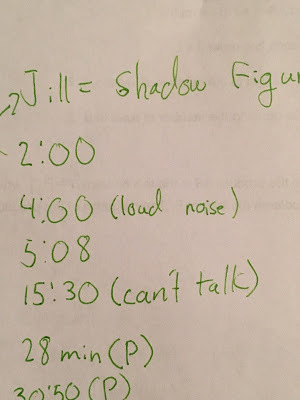 Jill = Shadow Figur
2:00
4:00 (loud noise)
5:08
15:30 (can't talk)
28 min (P)
30:50 (P)